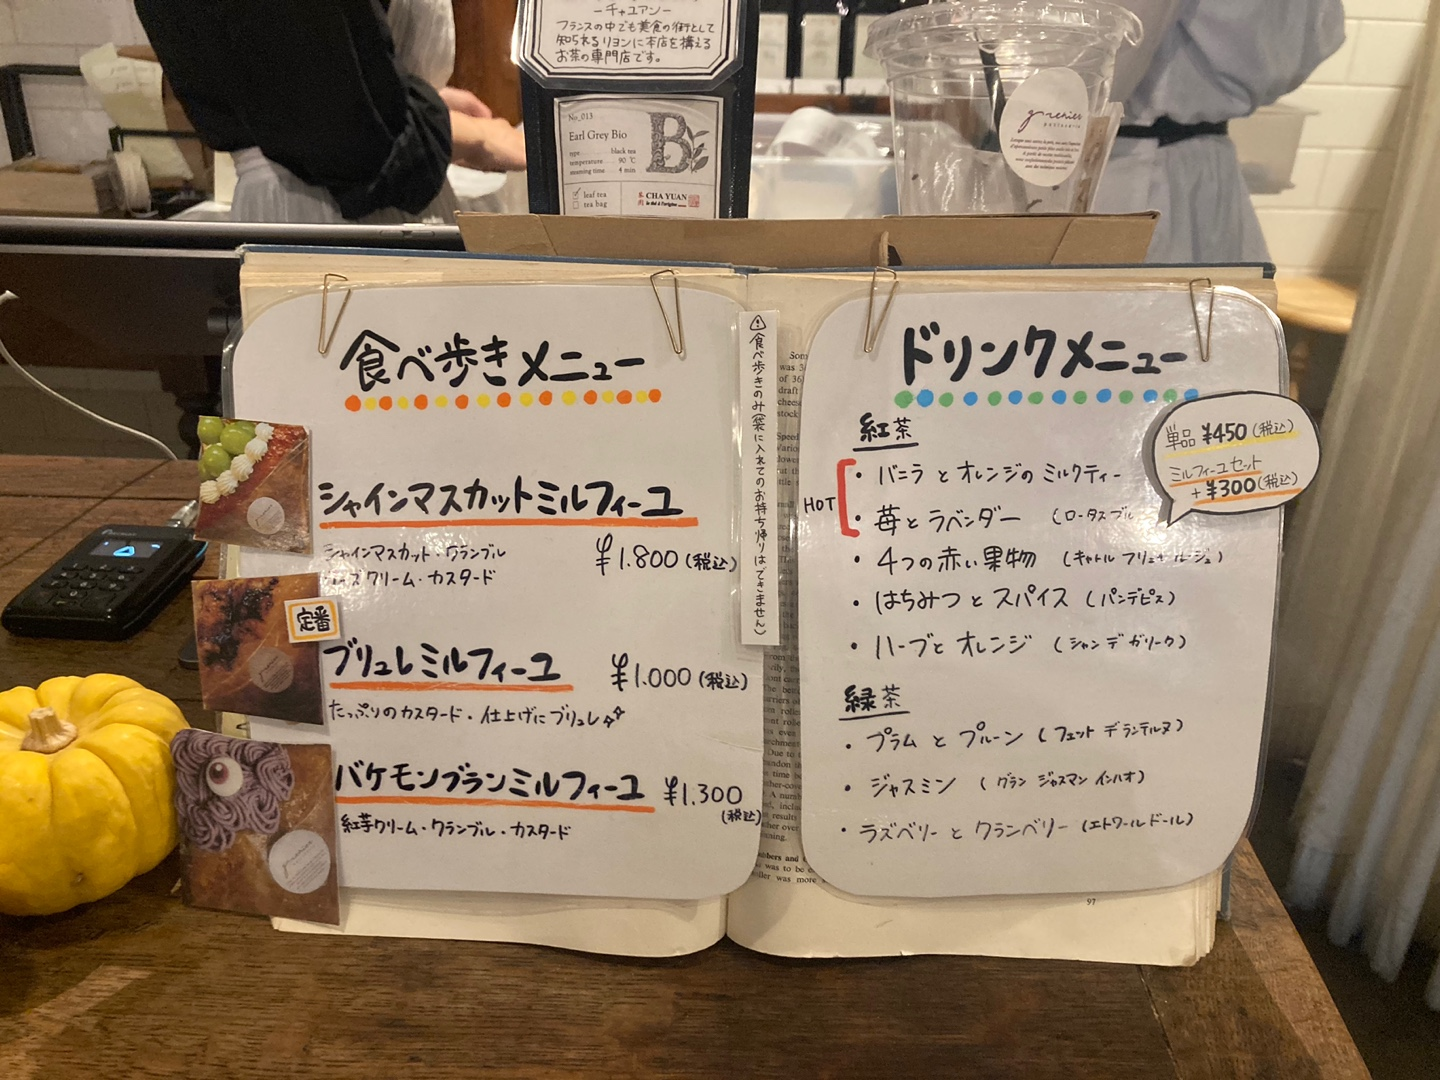 ーチャユアンー
フランスの中でも美食の街として
知られるリヨンに本店を構える
お茶の専門店です。
No_013
Earl Grey Bio
type black tea
temperature 90 ℃
steaming time 4 min
leaf tea
tea bag
B
CHA YUAN
食べ歩きメニュー
シャインマスカットミルフィーユ
シャインマスカット・クランブル
クリーム・カスタード
¥1.800 (税込)
定番
ブリュレミルフィーユ
¥1.000 (税込)
たっぷりのカスタード・仕上げにブリュレ
バケモンブランミルフィーユ
¥1.300
(税込)
紅芋クリーム・クランブル・カスタード
食べ歩きのみ(袋に入れてのお持ち帰りはできません)
ドリンクメニュー
単品 ¥450 (税込)
ミルフィーユセット
+¥300(税込)
紅茶
HOT
・バニラとオレンジのミルクティー
・苺とラベンダー (ロータスブル
・4つの赤い果物 (キャトルフリュイルージュ)
・はちみつとスパイス (パンデピス)
・ハーブとオレンジ (シャンデ ガリーク)
緑茶
・プラムとプルーン (フェット デランテルヌ)
・ジャスミン (グラン ジャスマン インハオ)
・ラズベリーとクランベリー (エトワールドール)
97